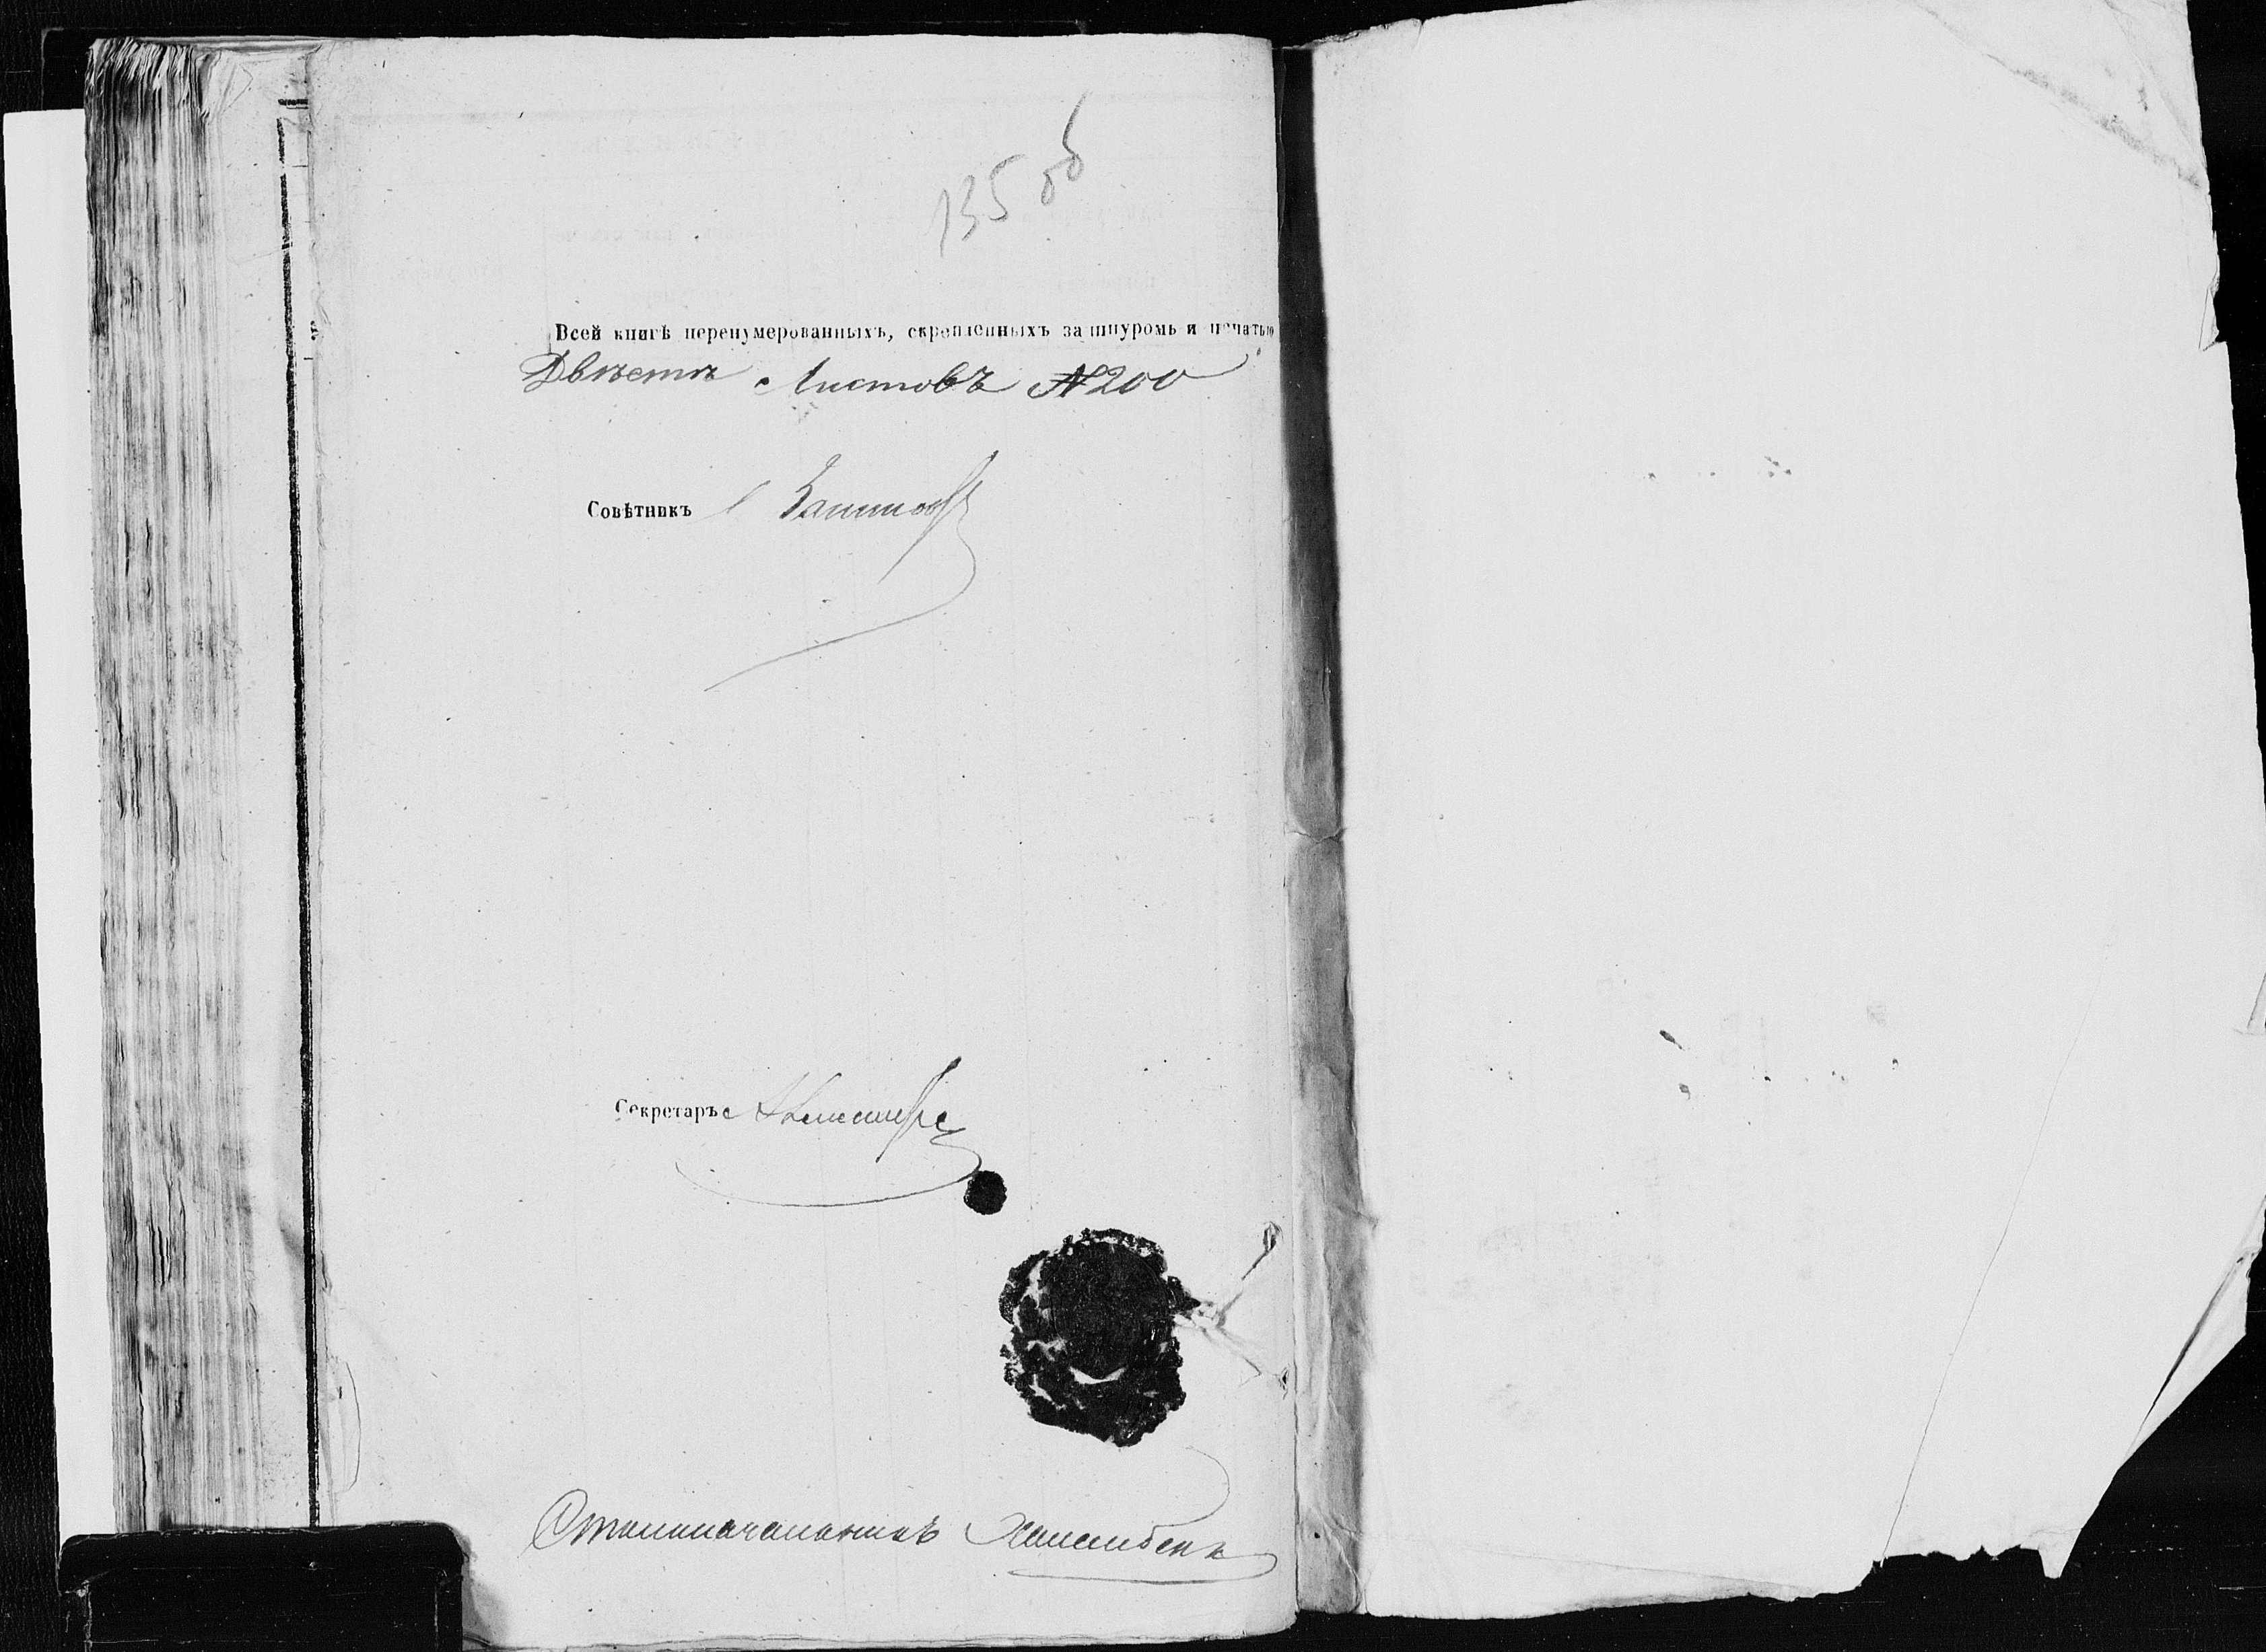 135 об
Всей книгѣ перенумерованныхъ, скрѣпленныхъ за шнуромъ и печатью
Двѣсти Листовъ № 200
Совѣтникъ
Секретарь
Столоначальникъ